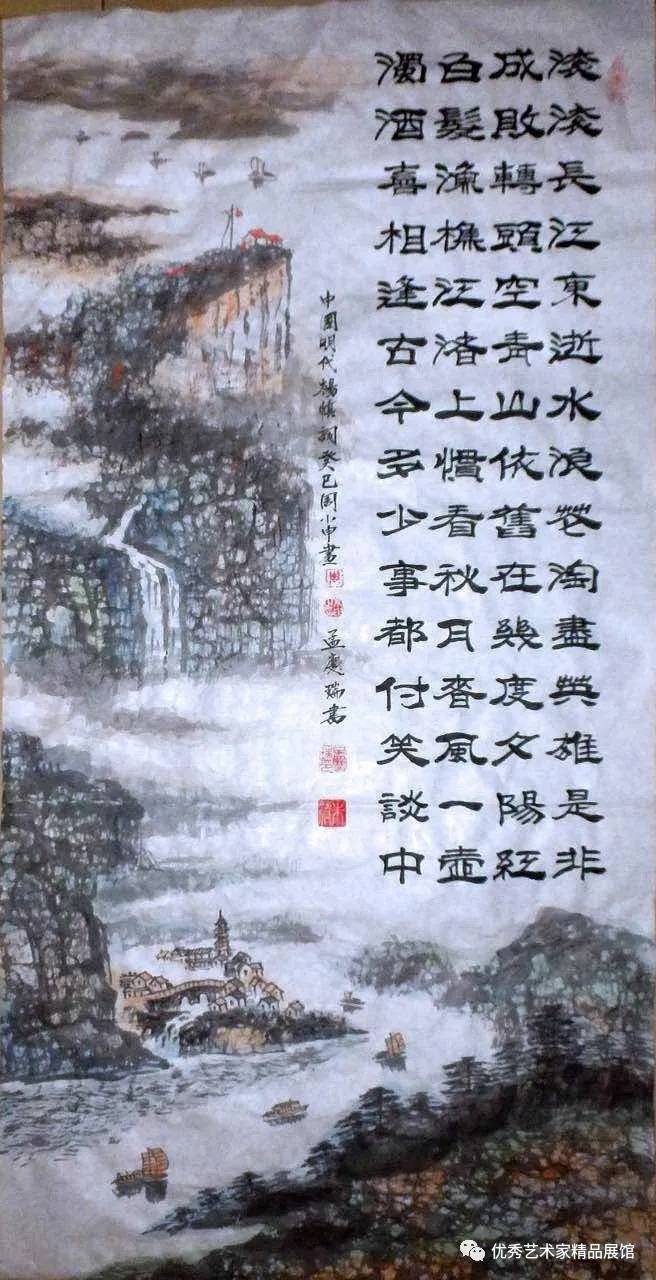 滾滾長江東逝水浪花淘盡英雄是非
成敗轉頭空青山依舊在幾度夕陽紅
白髮漁樵江渚上慣看秋月春風一壺
濁酒喜相逢古今多少事都付笑談中
中國明代楊慎詞癸巳周小申畫
孟慶瑞書
优秀艺术家精品展馆